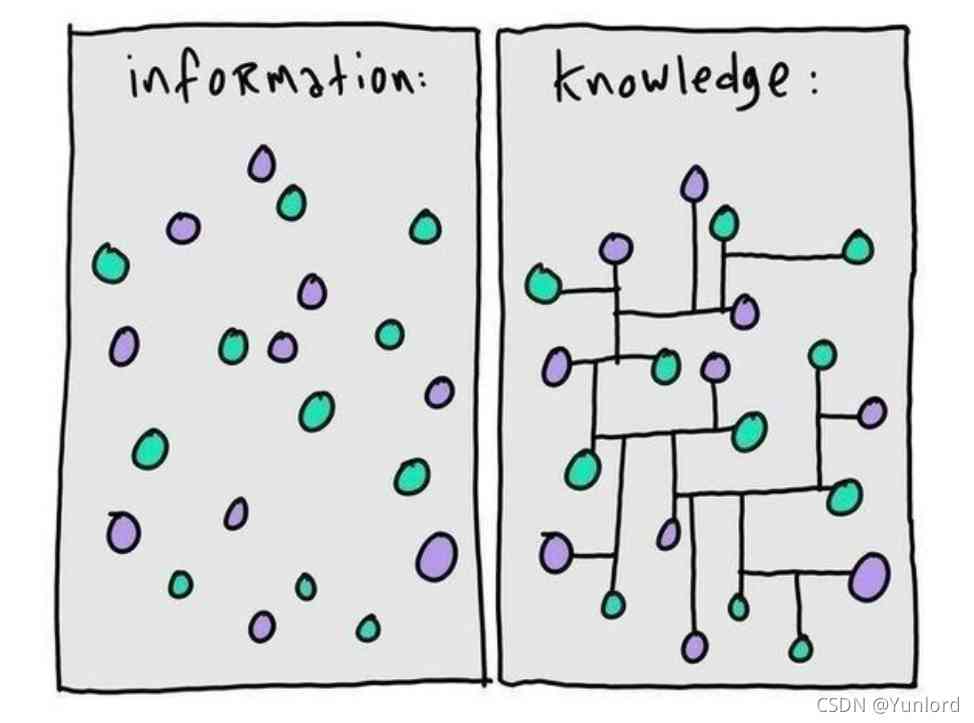 information:
knowledge:
CSDN @Yunlord